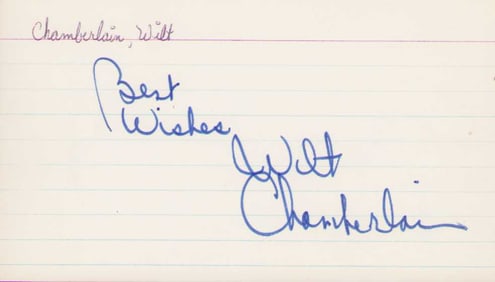 Chamberlain, Wilt
Best
Wishes
Wilt
Chamberlain